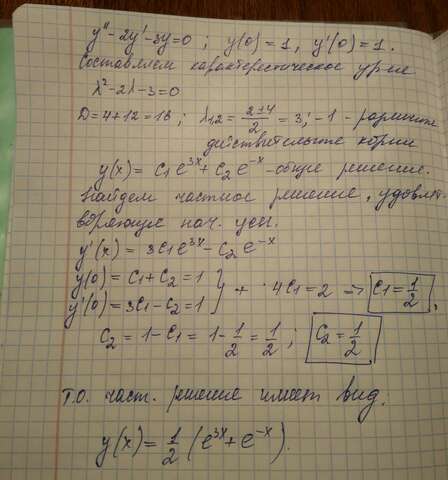 y'' - 2y' - 3y = 0 ; y(0) = 1, y'(0) = 1.
Составляем характеристическое ур-ие
λ² - 2λ - 3 = 0
D = 4 + 12 = 16 ; λ1,2 = (2 ± 4)/2 = 3; -1 - различные
действительные корни
y(x) = C1 e^{3x} + C2 e^{-x} - общее решение.
Найдем частное решение, удовлет-
воряющее нач. усл.
y'(x) = 3C1 e^{3x} - C2 e^{-x}
y(0) = C1 + C2 = 1
y'(0) = 3C1 - C2 = 1 } + 4C1 = 2 => C1 = 1/2,
C2 = 1 - C1 = 1 - 1/2 = 1/2 ; C2 = 1/2.
Т.О. част. решение имеет вид:
y(x) = 1/2 (e^{3x} + e^{-x}).